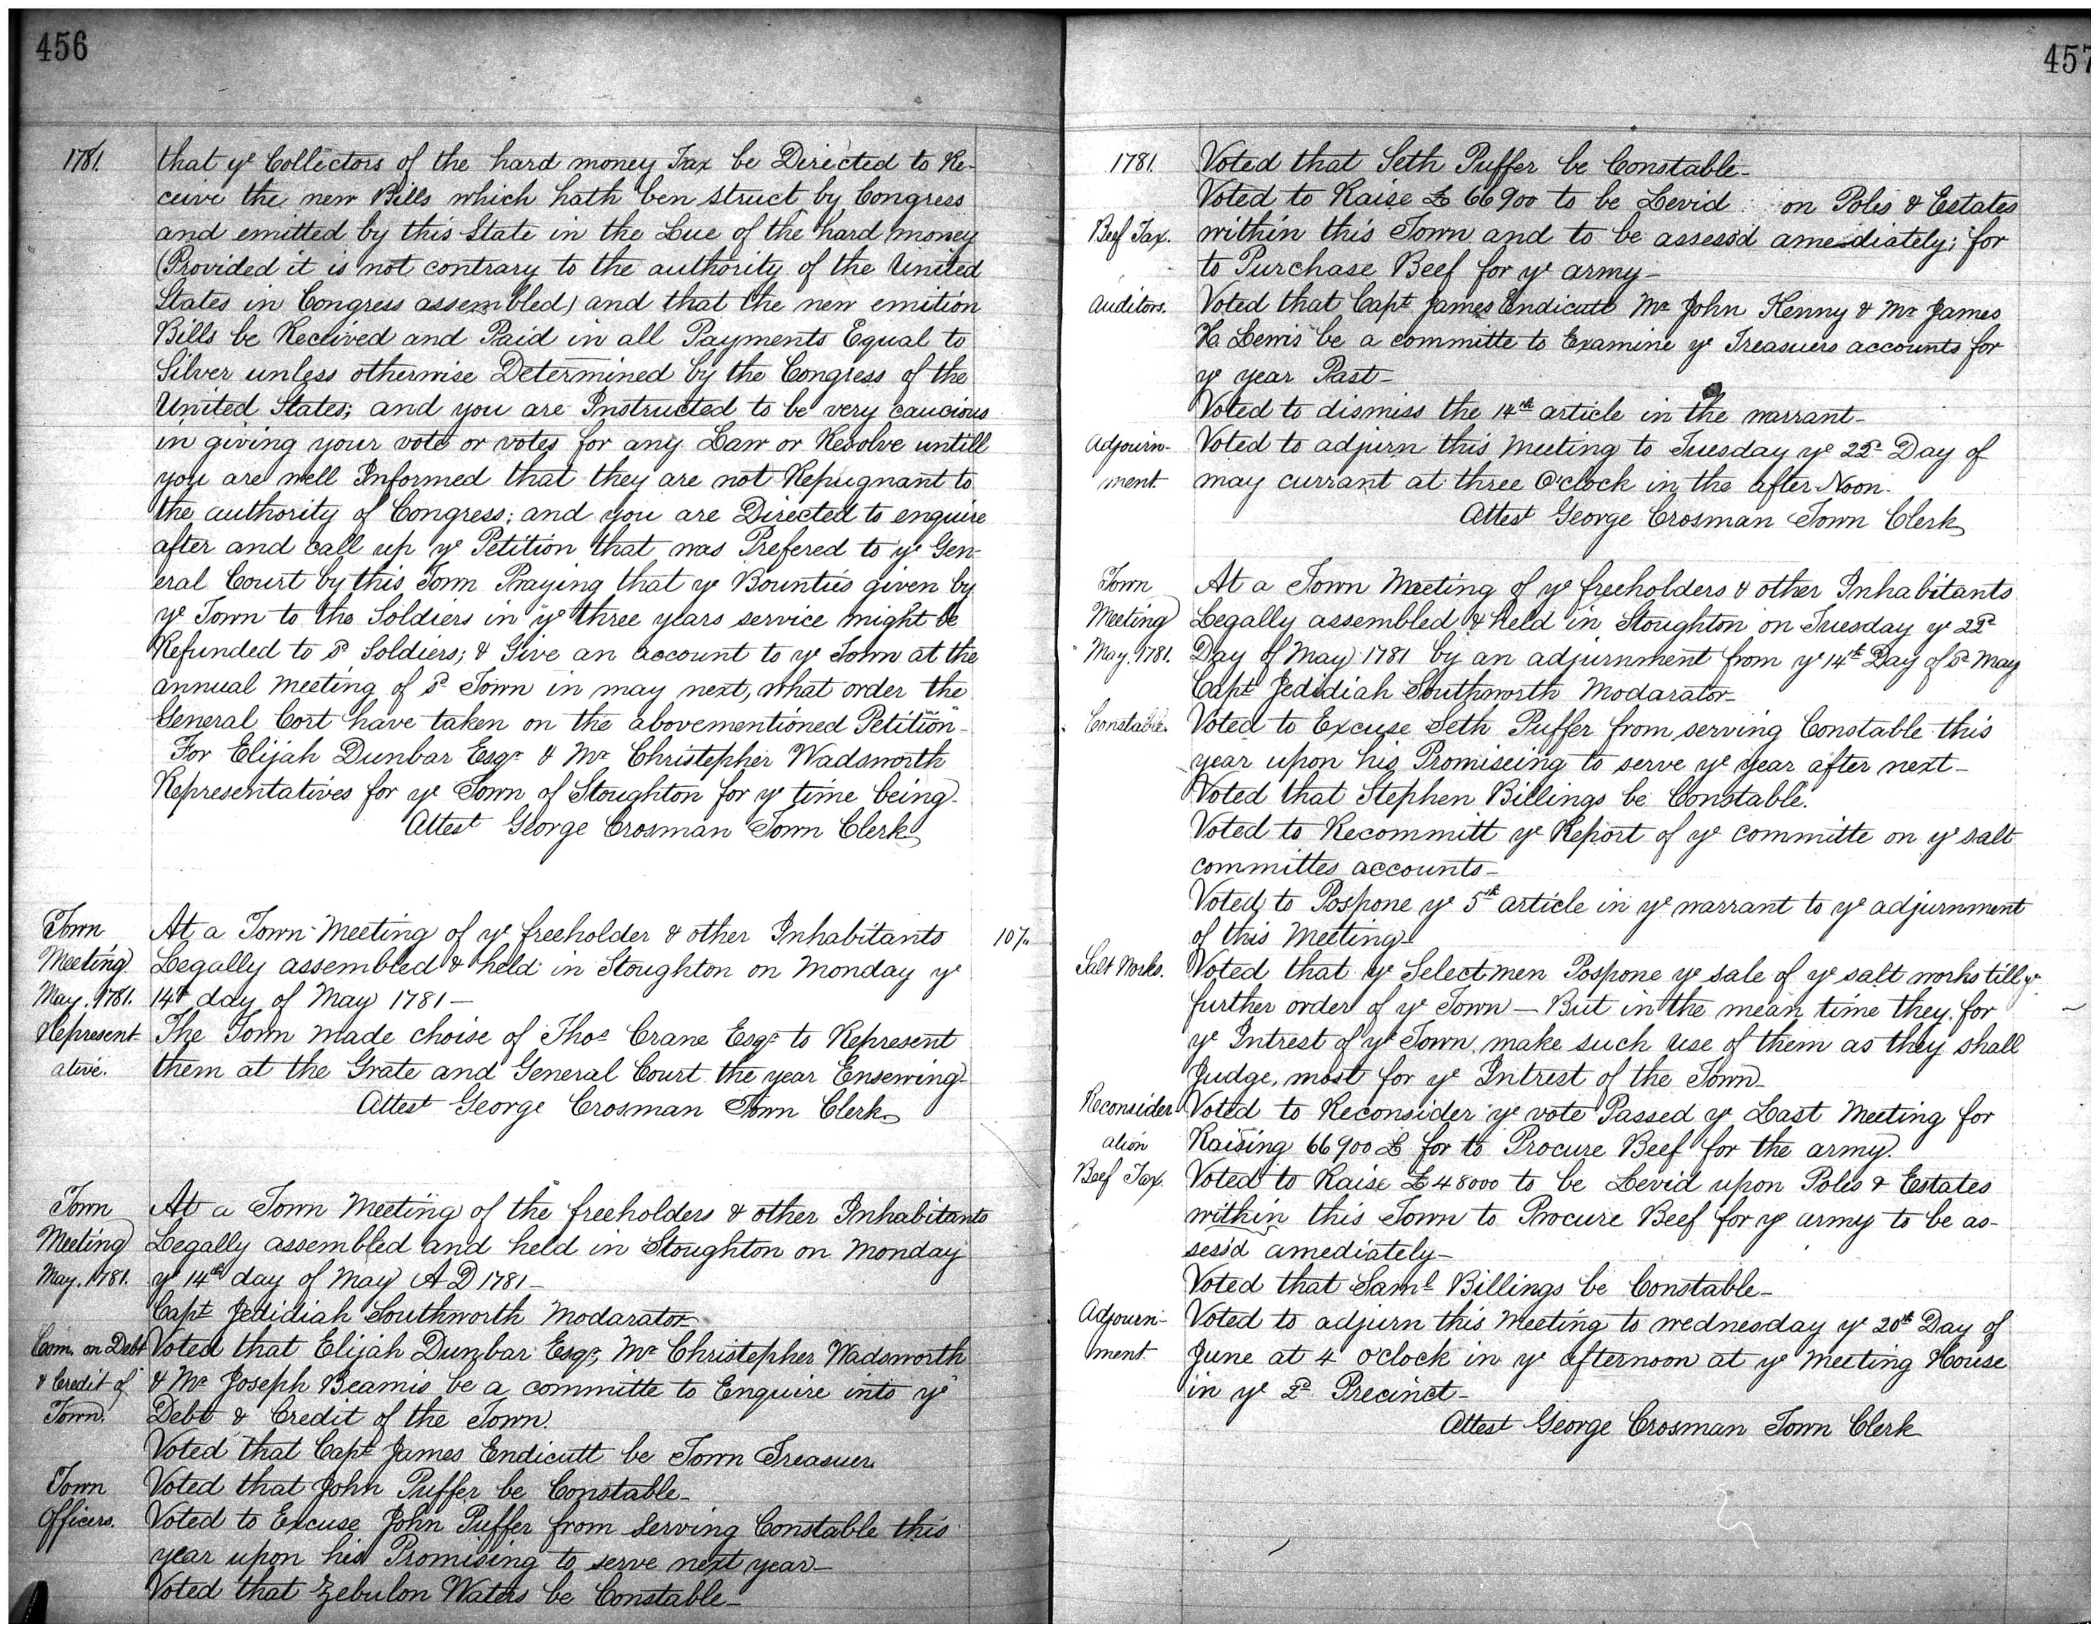 456
1781. that ye Collectors of the hard money Tax be Directed to Re-
ceive the new Bills which hath ben struct by Congress
and emitted by this State in the Lue of the hard money
(Provided it is not contrary to the authority of the United
States in Congress assembled) and that the new emition
Bills be Received and Paid in all Payments Equal to
Silver unless otherwise Determined by the Congress of the
United States; and you are Instructed to be very caucious
in giving your vote or votes for any Law or Resolve untill
you are well Informed that they are not Repugnant to
the authority of Congress; and you are Directed to enquire
after and call up ye Petition that was Prefered to ye Gen-
eral Court by this Town Praying that ye Bounties given by
ye Town to the Soldiers in ye three years service might be
Refunded to sd Soldiers; & Give an account to ye Town at the
annual Meeting of sd Town in may next, what order the
General Cort have taken on the abovementioned Petition-
For Elijah Dunbar Esqr & Mr Christepher Wadsworth
Representatives for ye Town of Stoughton for ye time being-
Attest George Crosman Town Clerk
Town At a Town Meeting of ye freeholder & other Inhabitants 107.
Meeting Legally assembled & held in Stoughton on Monday ye
May. 1781. 14th day of May 1781-
Represent- The Town made choise of Thos Crane Esqr to Represent
ative. them at the Grate and General Court the year Ensewing-
Attest George Crosman Town Clerk
Town At a Town Meeting of the freeholders & other Inhabitants
Meeting Legally assembled and held in Stoughton on Monday
May. 1781. ye 14th day of May A D 1781-
Capt Jedidiah Southworth Modarator
Com. on Debt Voted that Elijah Dunbar Esqr, Mr Christepher Wadsworth
& Credit of & Mr Joseph Beamis be a committe to Enquire into ye
Town. Debt & Credit of the Town.
Voted that Capt James Endicutt be Town Treasuer.
Town Voted that John Puffer be Constable-
Officers. Voted to Excuse John Puffer from Serving Constable this
year upon his Promising to serve next year-
Voted that Zebulon Waters be Constable-
457
1781. Voted that Seth Puffer be Constable-
Voted to Raise £ 66900 to be Levid on Poles & Estates
Beef Tax. within this Town and to be assessd amediately; for
to Purchase Beef for ye army-
Auditors. Voted that Capt James Endicutt Mr John Kenny & Mr James
H Lewis be a committe to Examine ye Treasuers accounts for
ye year Past-
Voted to dismiss the 14th article in the warrant-
Adjourn- Voted to adjurn this Meeting to Tuesday ye 22d Day of
ment may currant at three O'clock in the after Noon.
Attest George Crosman Town Clerk
Town At a Town Meeting of ye freeholders & other Inhabitants
Meeting Legally assembled & held in Stoughton on Tuesday ye 22d
May. 1781. Day of May 1781 by an adjurnment from ye 14th Day of sd May
Capt Jedidiah Southworth Modarator-
Constable. Voted to Excuse Seth Puffer from serving Constable this
year upon his Promiseing to serve ye year after next-
Voted that Stephen Billings be Constable.
Voted to Recommitt ye Report of ye committe on ye salt
committes accounts-
Voted to Pospone ye 5th article in ye warrant to ye adjurnment
of this Meeting-
Salt Works. Voted that ye Selectmen Pospone ye sale of ye salt works till ye
further order of ye Town - But in the mean time they for
ye Intrest of ye Town make such use of them as they shall
Judge, most for ye Intrest of the Town-
Reconsider- Voted to Reconsider ye vote Passed ye Last Meeting for
ation Raising 66900 £ for to Procure Beef for the army.
Beef Tax. Voted to Raise £ 48000 to be Levid upon Poles & Estates
within this Town to Procure Beef for ye army to be as-
sessd amediately-
Voted that Saml Billings be Constable-
Adjourn- Voted to adjurn this Meeting to wednesday ye 20th Day of
ment June at 4 oclock in ye afternoon at ye Meeting House
in ye 2d Precinct-
Attest George Crosman Town Clerk